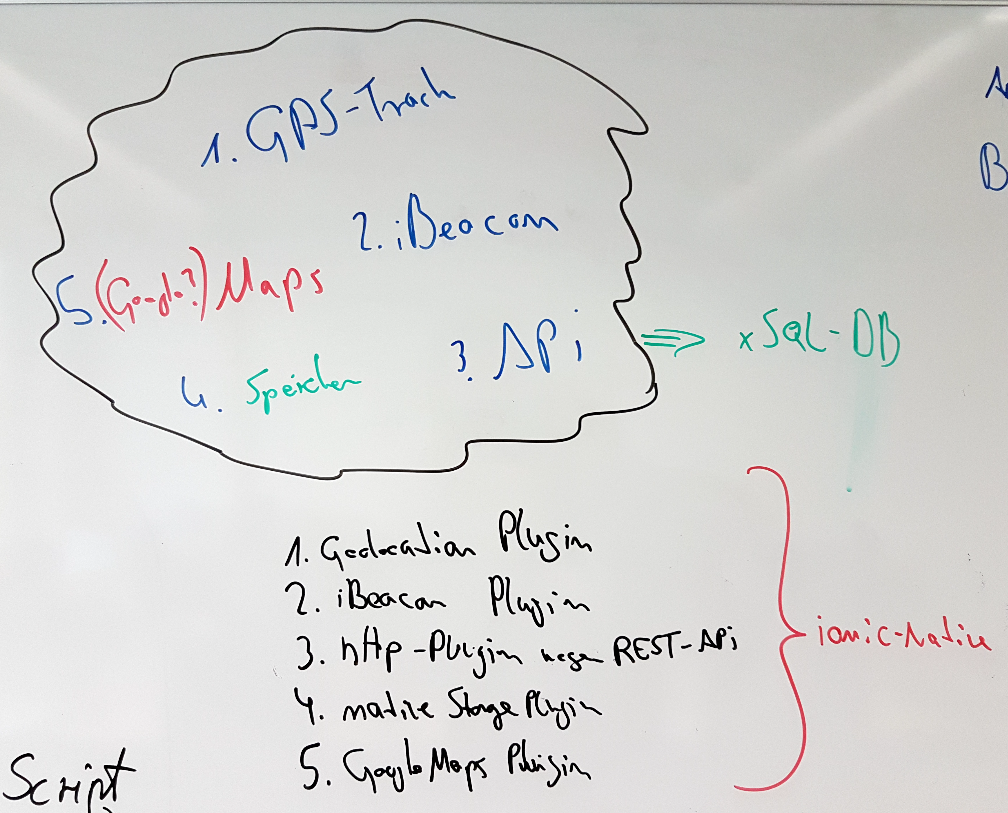 1. GPS-Track
2. iBeacon
5. (Google?) Maps
3. APi
4. Speicher
⇒ xSQL-DB
A
B
1. Geolocation Plugin
2. iBeacon Plugin
3. http-Plugin wegen REST-APi
4. native Storage Plugin
5. Google Maps Plugin
ionic-Native
Script